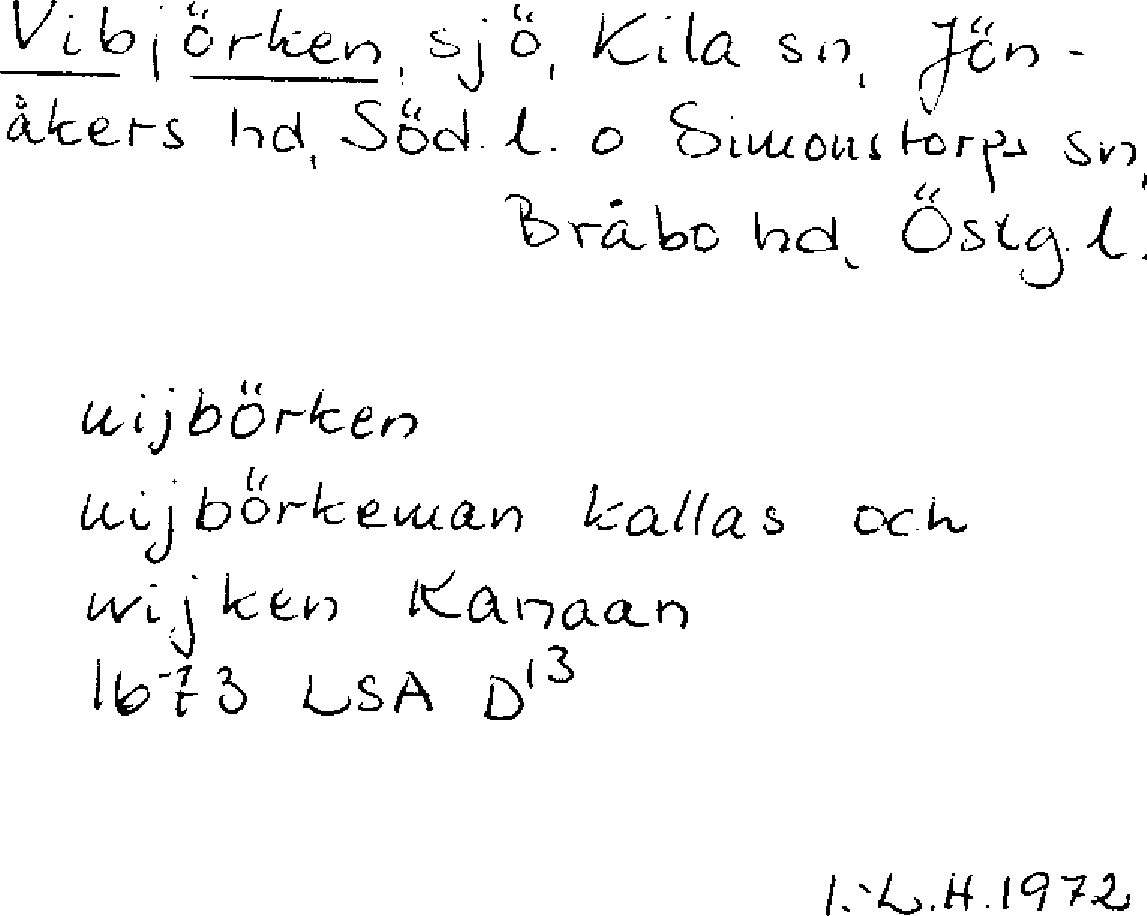 Vibjörken, sjö, Kila sn, Jön-
åkers hd, Söd.l. o Simonstorps sn,
Bråbo hd, Östg.l.
uijbörken
uijbörkeman kallas och
wijken Kanaan
1673 LSA D¹³
I.-L.H.1972